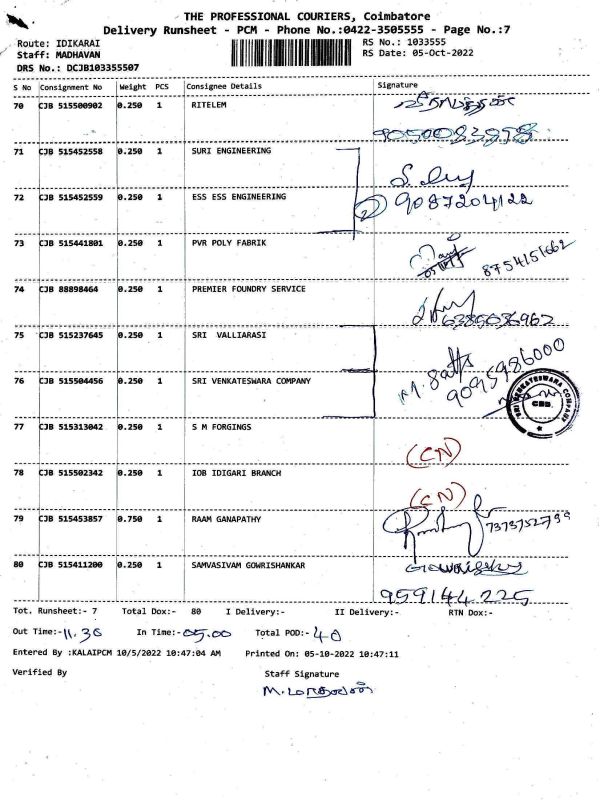 THE PROFESSIONAL COURIERS, Coimbatore
Delivery Runsheet - PCM - Phone No.:0422-3505555 - Page No.:7
Route: IDIKARAI
RS No.: 1033555
Staff: MADHAVAN
RS Date: 05-Oct-2022
DRS No.: DCJB103355507
S No Consignment No Weight PCS Consignee Details Signature
70 CJB 515500902 0.250 1 RITELEM
71 CJB 515452558 0.250 1 SURI ENGINEERING
72 CJB 515452559 0.250 1 ESS ESS ENGINEERING
② 9087204122
73 CJB 515441801 0.250 1 PVR POLY FABRIK
8754151662
74 CJB 88898464 0.250 1 PREMIER FOUNDRY SERVICE
6385036962
75 CJB 515237645 0.250 1 SRI VALLIARASI
9095986000
76 CJB 515504456 0.250 1 SRI VENKATESWARA COMPANY
SRI VENKATESWARA COMPANY
CBE.
77 CJB 515313042 0.250 1 S M FORGINGS
(CN)
78 CJB 515502342 0.250 1 IOB IDIGARI BRANCH
(CN)
79 CJB 515453857 0.750 1 RAAM GANAPATHY
7373752799
80 CJB 515411200 0.250 1 SAMVASIVAM GOWRISHANKAR
959144225
Tot. Runsheet:- 7 Total Dox:- 80 I Delivery:- II Delivery:- RTN Dox:-
Out Time:- 11.30 In Time:- 05.00 Total POD:- 40
Entered By :KALAIPCM 10/5/2022 10:47:04 AM Printed On: 05-10-2022 10:47:11
Verified By Staff Signature
M. மாதவன்